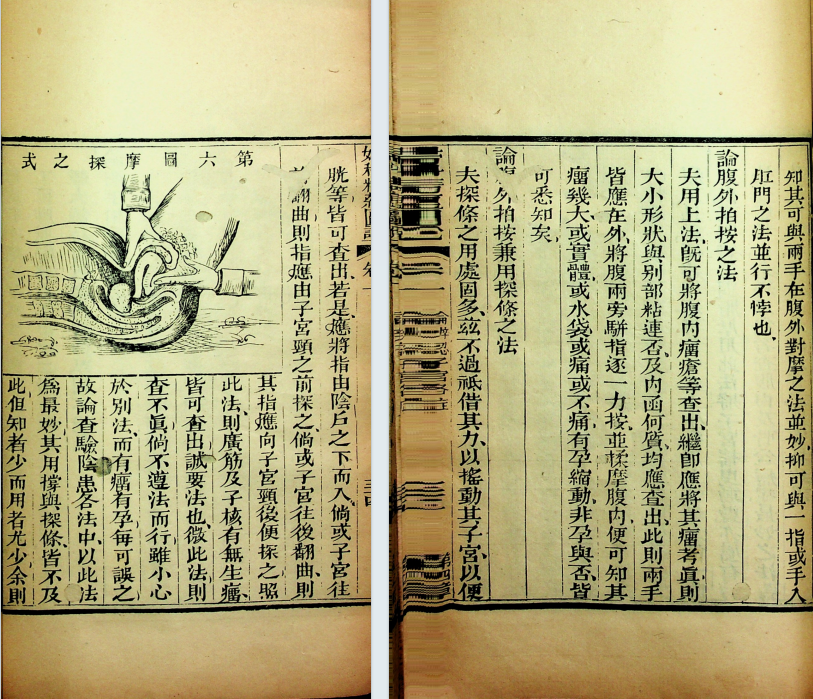 知其可與兩手在腹外對摩之法並妙抑可與一指或手入
肛門之法並行不悖也
論腹外拍按之法
夫用上法旣可將腹內瘤瘡等查出繼卽應將其瘤考眞則
大小形狀與別部粘連否及內函何質均應查出此則兩手
皆應在外將腹兩旁駢指逐一力按並揉摩腹內便可知其
瘤幾大或實體或水袋或痛或不痛有孕縮動非孕與否皆
可悉知矣
論 外拍按兼用探條之法
夫探條之用處固多茲不過祇借其力以搖動其子宮以便
第六圖摩探之式
胱等皆可查出若是應將指由陰戶之下而入倘或子宮往
翻曲則指應由子宮頸之前探之倘或子宮往後翻曲則
其指應向子宮頸後便探之照
此法則廣筋及子核有無生瘤
皆可查出誠要法也微此法則
查不眞倘不遵法而行雖小心
於別法而有瘤有孕每可誤之
故論查驗陰患各法中以此法
爲最妙其用撐與探條皆不及
此但知者少而用者尤少余則